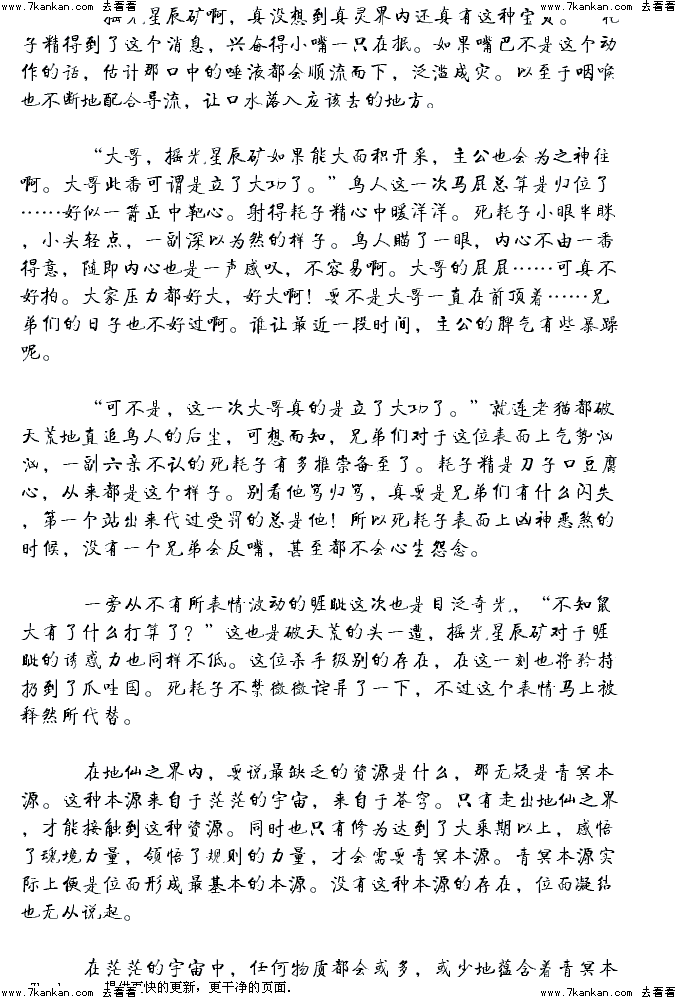 www.7kankan.com 去看看 www.7kankan.com 去看看 www.7kankan.com 去看看
摇光星辰矿啊，真没想到真灵界内还真有这种宝贝。”耗
子精得到了这个消息，兴奋得小嘴一只在抿。如果嘴巴不是这个动
作的话，估计那口中的唾液都会顺流而下，泛滥成灾。以至于咽喉
也不断地配合导流，让口水落入应该去的地方。
“大哥，摇光星辰矿如果能大面积开采，主公也会为之神往
啊。大哥此番可谓是立了大功了。”鸟人这一次马屁总算是归位了
……好似一箭正中靶心。射得耗子精心中暖洋洋。死耗子小眼半眯
，小头轻点，一副深以为然的样子。鸟人瞄了一眼，内心不由一番
得意，随即内心也是一声感叹，不容易啊。大哥的屁屁……可真不
好拍。大家压力都好大，好大啊！要不是大哥一直在前顶着……兄
弟们的日子也不好过啊。谁让最近一段时间，主公的脾气有些暴躁
呢。
“可不是，这一次大哥真的是立了大功了。”就连老猫都破
天荒地直追鸟人的后尘，可想而知，兄弟们对于这位表面上气势汹
汹，一副六亲不认的死耗子有多推崇备至了。耗子精是刀子口豆腐
心，从来都是这个样子。别看他骂归骂，真要是兄弟们有什么闪失
，第一个站出来代过受罚的总是他！所以死耗子表面上凶神恶煞的
时候，没有一个兄弟会反嘴，甚至都不会心生怨念。
一旁从不有所表情波动的睚眦这次也是目泛奇光，“不知鼠
大有了什么打算了？”这也是破天荒的头一遭，摇光星辰矿对于睚
眦的诱惑力也同样不低。这位杀手级别的存在，在这一刻也将矜持
扔到了爪哇国。死耗子不禁微微诧异了一下，不过这个表情马上被
释然所代替。
在地仙之界内，要说最缺乏的资源是什么，那无疑是青冥本
源。这种本源来自于茫茫的宇宙，来自于苍穹。只有走出地仙之界
，才能接触到这种资源。同时也只有修为达到了大乘期以上，感悟
了魂境力量，领悟了规则的力量，才会需要青冥本源。青冥本源实
际上便是位面形成最基本的本源。没有这种本源的存在，位面凝结
也无从说起。
在茫茫的宇宙中，任何物质都会或多，或少地蕴含着青冥本
提供更快的更新，更干净的页面.
www.7kankan.com 去看看 www.7kankan.com 去看看 www.7kankan.com 去看看